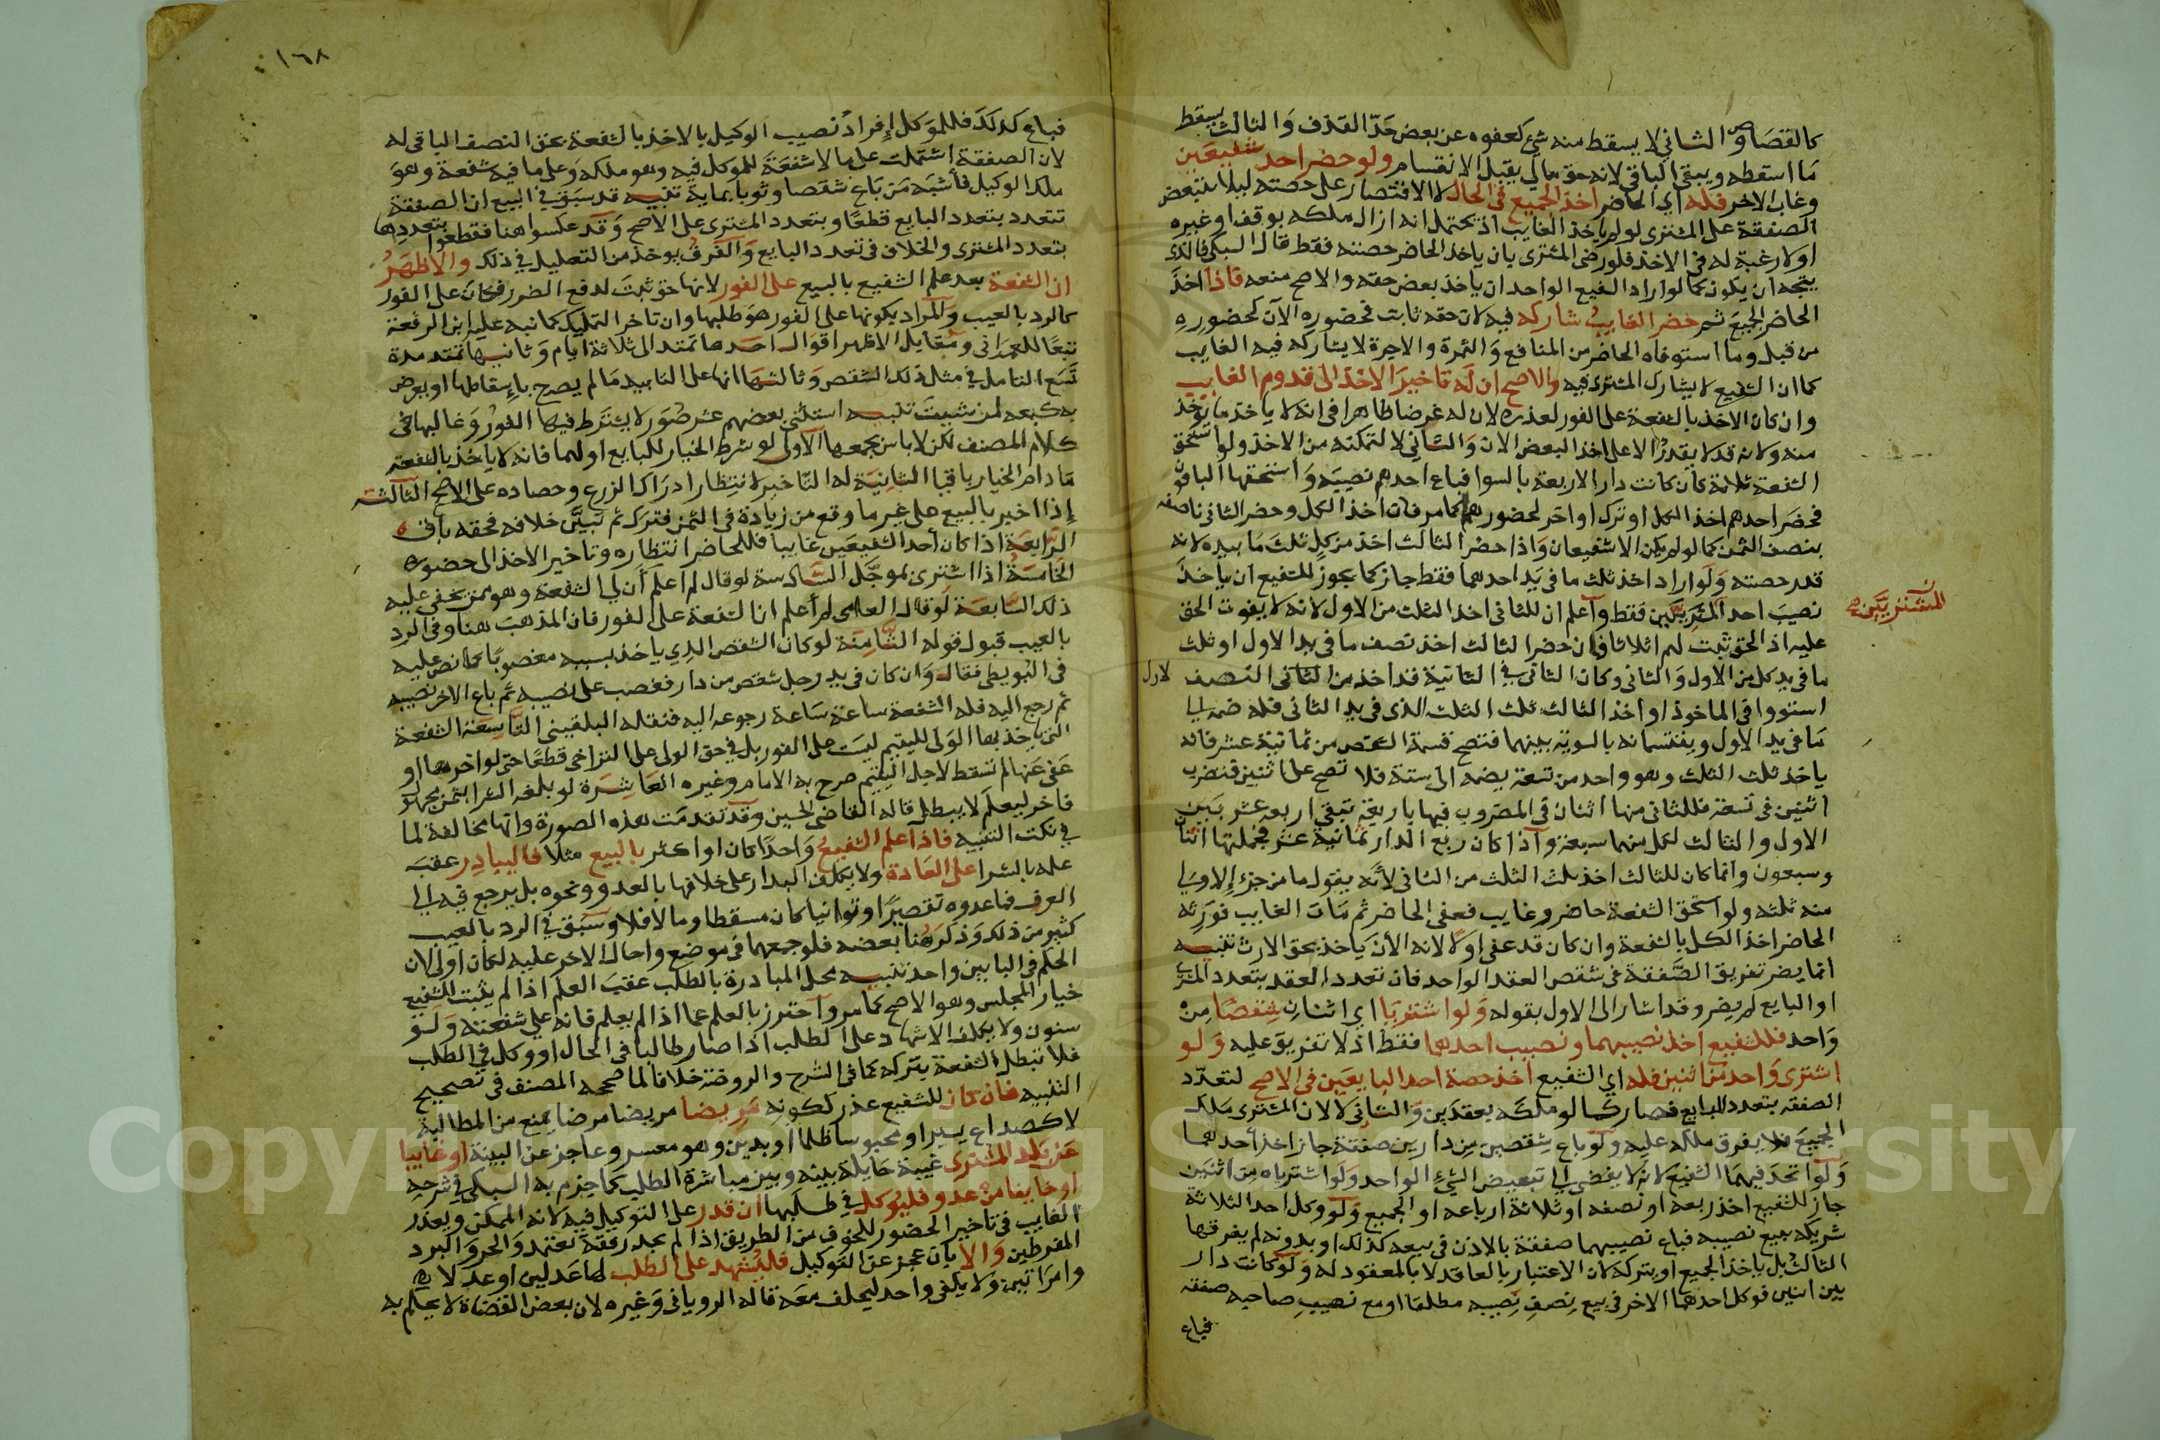 كالقصاص والثاني لا يسقط منه شئ كعفوه عن بعض حد القذف والثالث يسقط
ما اسقطه ويبقى الباقي لانه حق مالي يقبل الانقسام ولو حضر احد شفيعين
وغاب الاخر فله اي الحاضر اخذ الجميع في الحال لا الاقتصار على حصته ليلا تتبعض
الصفقة على المشتري لو لم ياخذ الغايب اذ يحتمل انه ازال ملكه بوقف او غيره
او لا رغبة له في الاخذ فلو رضي المشتري بان ياخذ الحاضر حصته فقط قال السبكي فالذي
يتجه ان يكون كما لو اراد الشفيع الواحد ان ياخذ بعض حقه والاصح منعه فاذا اخذ
الحاضر الجميع ثم حضر الغايب شاركه فيه لان حقه ثابت فحضوره الآن كحضوره
من قبل وما استوفاه الحاضر من المنافع والثمرة والاجرة لا يشاركه فيه الغايب
كما ان الشفيع لا يشارك المشتري فيه والاصح ان له تاخير الاخذ الى قدوم الغايب
وان كان الاخذ بالشفعة على الفور لعذره لان له غرضا ظاهرا في انه لا ياخذ ما يؤخذ
منه ولانه قد لا يقدر الا على اخذ البعض الان والثاني لا لتمكنه من الاخذ ولو استحق
الشفعة ثلاثة كان كانت دار الاربعة بالسوا فباع احدهم نصيبه واستحقها الباقون
فحضر احدهم اخذ الكل او ترك او اخر لحضورهما كما مر فان اخذ الكل وحضر الثاني ناصفه
بنصف الثمن كما لو لم يكن الا شفيعان واذا حضر الثالث اخذ من كل ثلث ما بيده لانه
قدر حصته ولو اراد اخذ ثلث ما في يد احدهما فقط جاز كما يجوز للشفيع ان ياخذ
نصيب احد المشتريين فقط واعلم ان للثاني اخذ الثلث من الاول لانه لا يفوت الحق
المشتريين صح
عليه اذ الحق ثبت لهم اثلاثا فان حضر الثالث اخذ نصف ما في يد الاول او ثلث
ما في يد كل من الاول والثاني وكان الثاني في الثانية قد اخذ من الثاني النصف
لاول
استووا في الماخوذ او اخذ الثالث ثلث الثلث الذي في يد الثاني فله ضمه الى
ما في يد الاول ويقتسمانه بالسوية بينهما فتصح قسمة الشقص من ثمانية عشر فانه
ياخذ ثلث الثلث وهو واحد من تسعة يضمه الى ستة فلا تصح على اثنين فنضرب
اثنين في تسعة فللثاني منها اثنان في المضروب فيها باربعة تبقى اربعة عشر بين
الاول والثالث لكل منهما سبعة واذا كان ربع الدار ثمانية عشر فجملتها اثنان
وسبعون وانما كان للثالث اخذ ثلث الثلث من الثاني لانه يقول ما من جزء إلا ولي
منه ثلثه ولو استحق الشفعة حاضر وغايب فعفى الحاضر ثم مات الغايب فورثه
الحاضر اخذ الكل بالشفعة وان كان قد عفى اولا لانه الآن ياخذ بحق الارث تنبيه
انما يضر تفريق الصفقة في شقص العقد الواحد فان تعدد العقد بتعدد المشتري
او البايع لم يضر وقد اشار الى الاول بقوله ولو اشتريا اي اثنان شقصا من
واحد فللشفيع اخذ نصيبهما ونصيب احدهما فقط اذ لا تفريق عليه ولو
اشترى واحد من اثنين فله اي الشفيع اخذ حصة احد البايعين في الاصح لتعدد
الصفقة بتعدد البايع فصار كما لو ملكه بعقدين والثاني لا لان المشتري ملك
الجميع فلا يفرق ملكه عليه ولو باع شقصين من دارين صفقة جاز اخذ احدهما
ولو اتحد فيهما الشفيع لانه لا يفضي الى تبعيض الشئ الواحد ولو اشترياه من اثنين
جاز للشفيع اخذ ربعه او نصفه او ثلاثة ارباعه او الجميع ولو وكل احد الثلاثة
شريكه ببيع نصيبه فباع نصيبهما صفقة بالاذن في بيعه كذلك او بدونه لم يفرقها
الثالث بل ياخذ الجميع او يتركه لان الاعتبار بالعاقد لا بالمعقود له ولو كانت دار
بين اثنين فوكل احدهما الاخر في بيع نصف نصيبه مطلقا او مع نصيب صاحبه صفقة
فباع
١٦٨
فباع كذلك فللموكل إفراد نصيب الوكيل بالاخذ بالشفعة بحق النصف الباقي له
لان الصفقة اشتملت على ما لا شفعة للموكل فيه وهو ملكه وعلى ما فيه شفعة وهو
ملك الوكيل فأشبه من باع شقصا وثوبا بماية تنبيه قد سبق في البيع ان الصفقة
تتعدد بتعدد البايع قطعا وبتعدد المشتري على الاصح وقد عكسوا هنا فقطعوا بتعددها
بتعدد المشتري والخلاف في تعدد البايع والفرق يوخذ من التعليل في ذلك والاظهر
ان الشفعة بعد علم الشفيع بالبيع على الفور لانها حق ثبت لدفع الضرر فكان على الفور
كالرد بالعيب والمراد بكونها على الفور هو طلبها وان تاخر التمليك كما نبه عليه ابن الرفعة
تبعا للعمراني ومقابل الاظهر اقوال احدها تمتد الى ثلاثة ايام وثانيها تمتد مدة
تسع التامل في مثل ذلك الشقص وثالثها انها على التابيد ما لم يصرح بإسقاطها او يعرض
به كبعه لمن شيت تنبيه استثنى بعضهم عشر صور لا يشترط فيها الفور وغالبها في
كلام المصنف لكن لا باس بجمعها الاولى لو شرط الخيار للبايع او لهما فانه لا ياخذ بالشفعة
ما دام الخيار باقيا الثانية له التاخير لانتظار ادراك الزرع وحصاده على الاصح الثالثة
إذا اخبر بالبيع على غير ما وقع من زيادة في الثمن فترك ثم تبين خلافه فحقه باق
الرابعة اذا كان أحد الشفيعين غايبا فللحاضر انتظاره وتاخير الاخذ الى حضوره
الخامسة اذا اشترى بموجل السادسة لو قال لم اعلم أن لي الشفعة وهو ممن يخفى عليه
ذلك السابعة لو قال العامي لم أعلم ان الشفعة على الفور فان المذهب هنا وفي الرد
بالعيب قبول قوله الثامنة لو كان الشقص الذي ياخذ بسببه مغصوبا كما نص عليه
في البويطي فقال وان كان في يد رجل شقص من دار فغصب على نصيبه ثم باع الاخر نصيبه
ثم رجع اليه فله الشفعة ساعة رجوعه اليه فنقله البلقيني التاسعة الشفعة
التي ياخذ بها الولي لليتيم ليست على الفور بل في حق الولي على التراخي قطعا حتى لو اخرها او
عفى عنها لم تسقط لاجل اليتيم صرح به الامام وغيره العاشرة لو بلغه الشرا بثمن مجهول
فاخر ليعلم لا يبطل قاله القاضي الحسين وقد تقدمت هذه الصورة وانها مخالفة لما
في نكت التنبيه فاذا علم الشفيع واحدا كان او اكثر بالبيع مثلا فاليبادر عقب
علمه بالشرا على العادة ولا يكلف البدار على خلافها بالعدو ونحوه بل يرجع فيه الى
العرف فما عدوه تقصيرا او توانيا كان مسقطا وما لا فلا وسبق في الرد بالعيب
كثير من ذلك وذكر هنا بعضه فلو جمعهما في موضع واحال الاخر عليه لكان اولى لان
الحكم في البابين واحد تنبيه محل المبادرة بالطلب عقب العلم اذا لم يثبت للشفيع
خيار المجلس وهو الاصح كما مر واحترز بالعلم عما اذا لم يعلم فانه على شفعته ولو
سنون ولا يكلف الاشهاد على الطلب اذا صار طالبا في الحال او وكل في الطلب
فلا تبطل الشفعة بتركه كما في الشرح والروضة خلافا لما صححه المصنف في تصحيح
التنبيه فان كان للشفيع عذر لكونه مريضا مريضا مرضا يمنع من المطالبة
لا كصداع يسير او محبوسا ظلما او بدين وهو معسر وعاجز عن البينة او غايبا
عن بلد المشتري غيبة حايلة بينه وبين مباشرة الطلب كما جزم به السبكي في شرحه
او خايفا من عدو فليوكل في طلبها ان قدر على التوكيل فيه لانه الممكن ويعذر
الغايب في تاخير الحضور للخوف من الطريق اذا لم يجد رفقة تعتمد والحر والبرد
المفرطين والا بان عجز عن التوكيل فليشهد على الطلب لها عدلين او عدلا
وامراتين ولا يكفي واحد ليحلف معه قاله الروياني وغيره لان بعض القضاة لا يحكم به